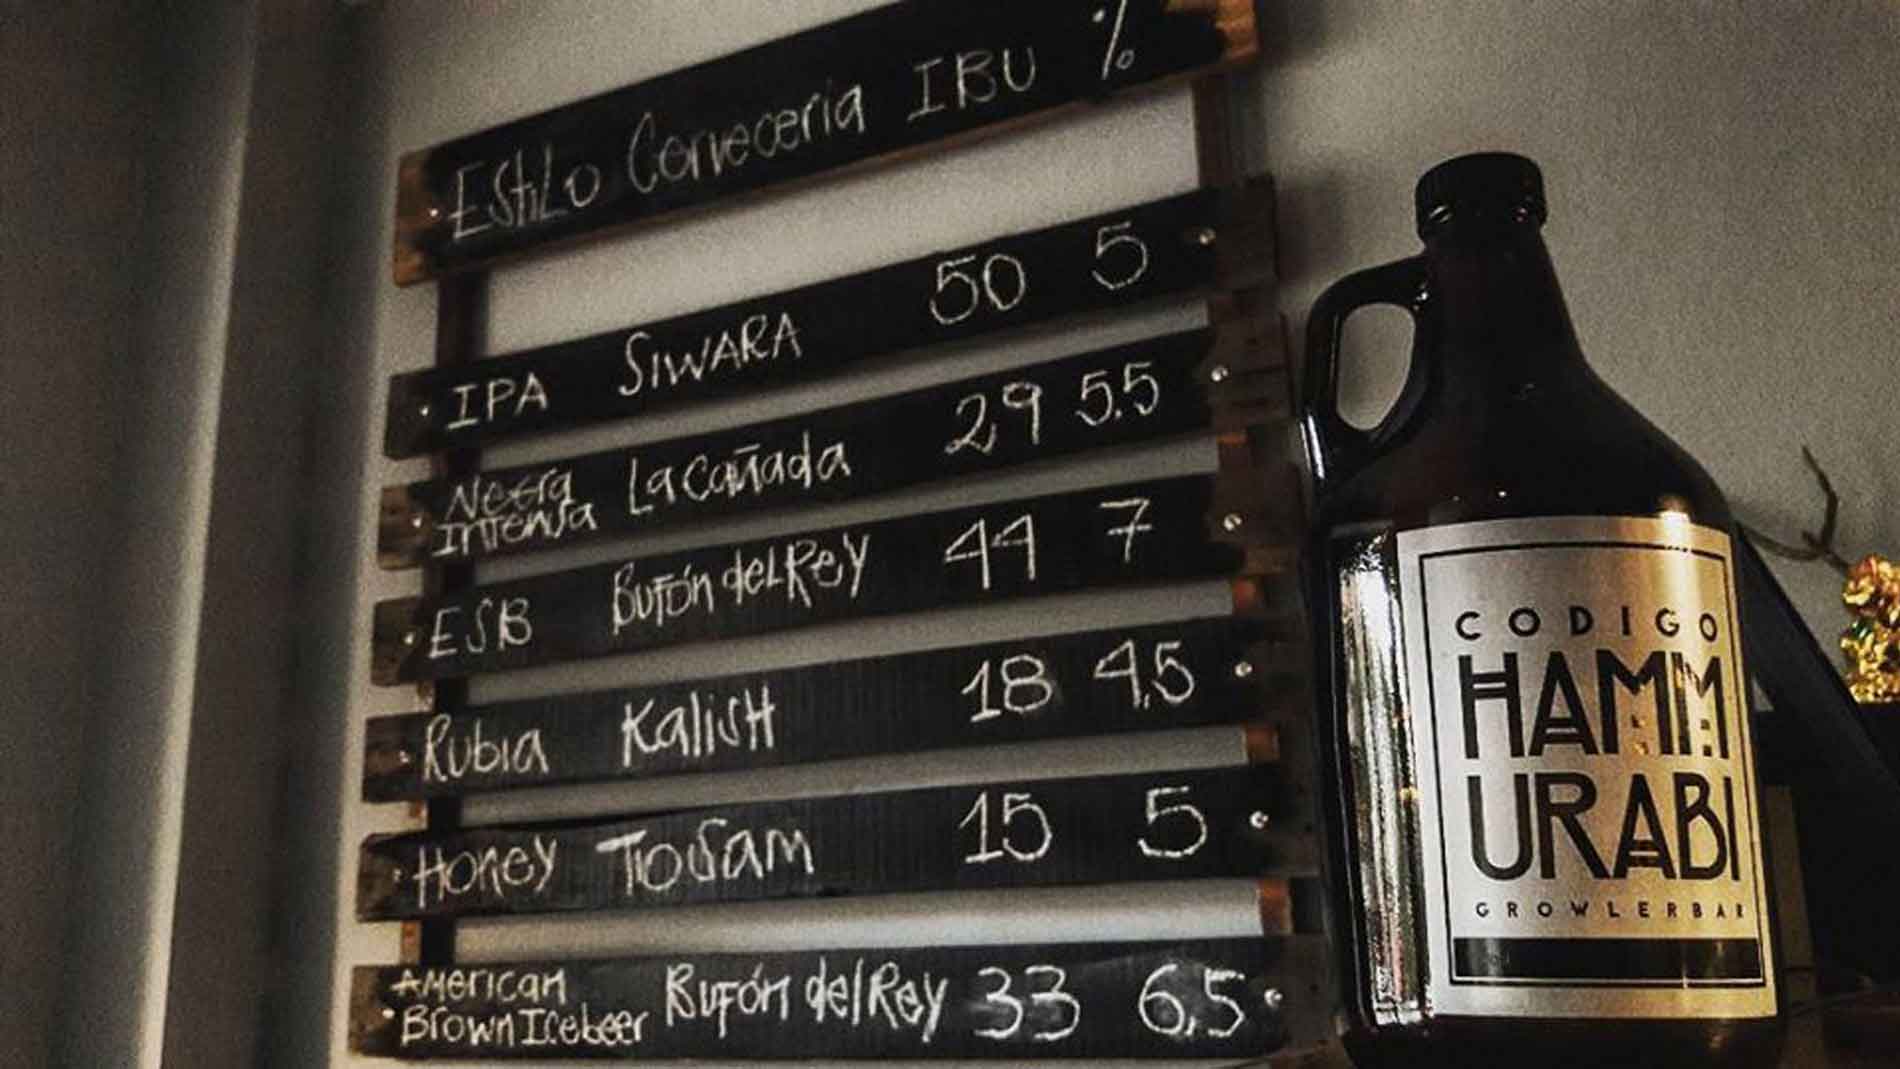 Estilo Cerveceria IBU %
IPA SIWARA 50 5
Negra Intensa La Cañada 29 5.5
ESB Bufón del Rey 44 7
Rubia Kalish 18 4,5
Honey TioSam 15 5
American Brown Icebeer Bufón del Rey 33 6,5
CODIGO
HAMM
URABI
GROWLERBAR